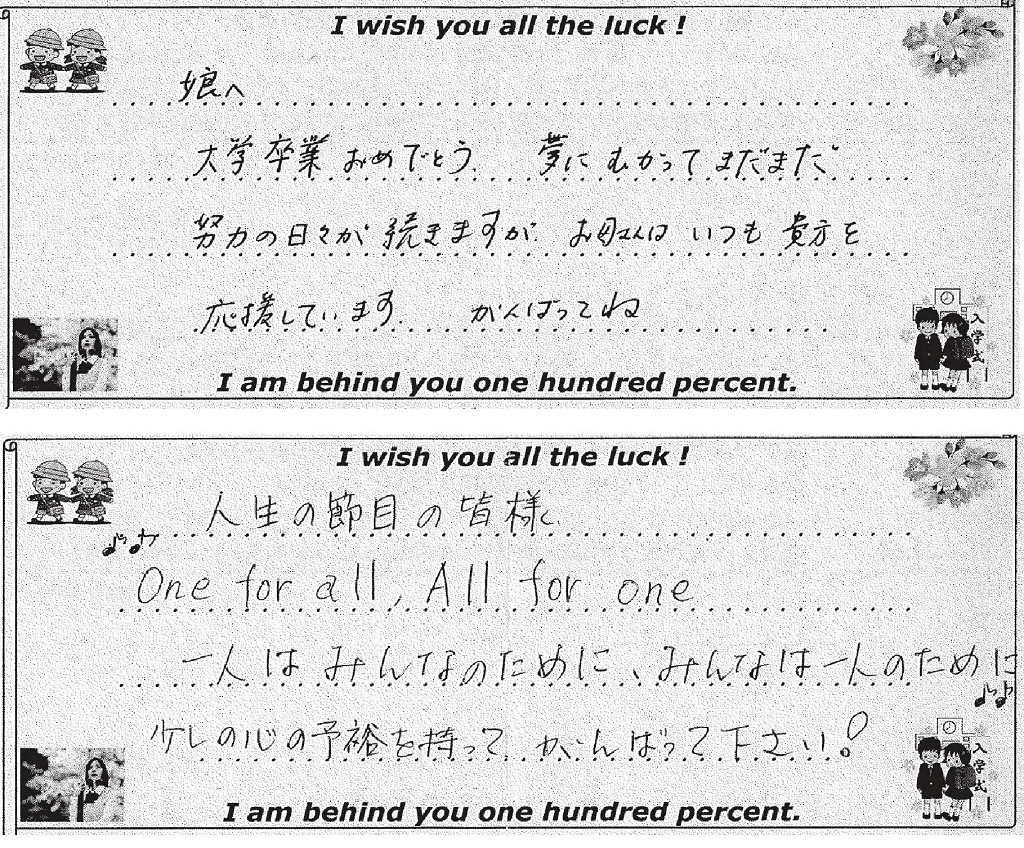 I wish you all the luck !
娘へ
大学卒業おめでとう. 夢にむかってまだまだ
努力の日々が続きますが. お母さんはいつも貴方を
応援しています. がんばってね
入学式
I am behind you one hundred percent.
I wish you all the luck !
人生の節目の皆様へ
One for all, All for one
一人はみんなのために、みんなは一人のために
少しの心の予裕を持って がんばって下さい!
入学式
I am behind you one hundred percent.